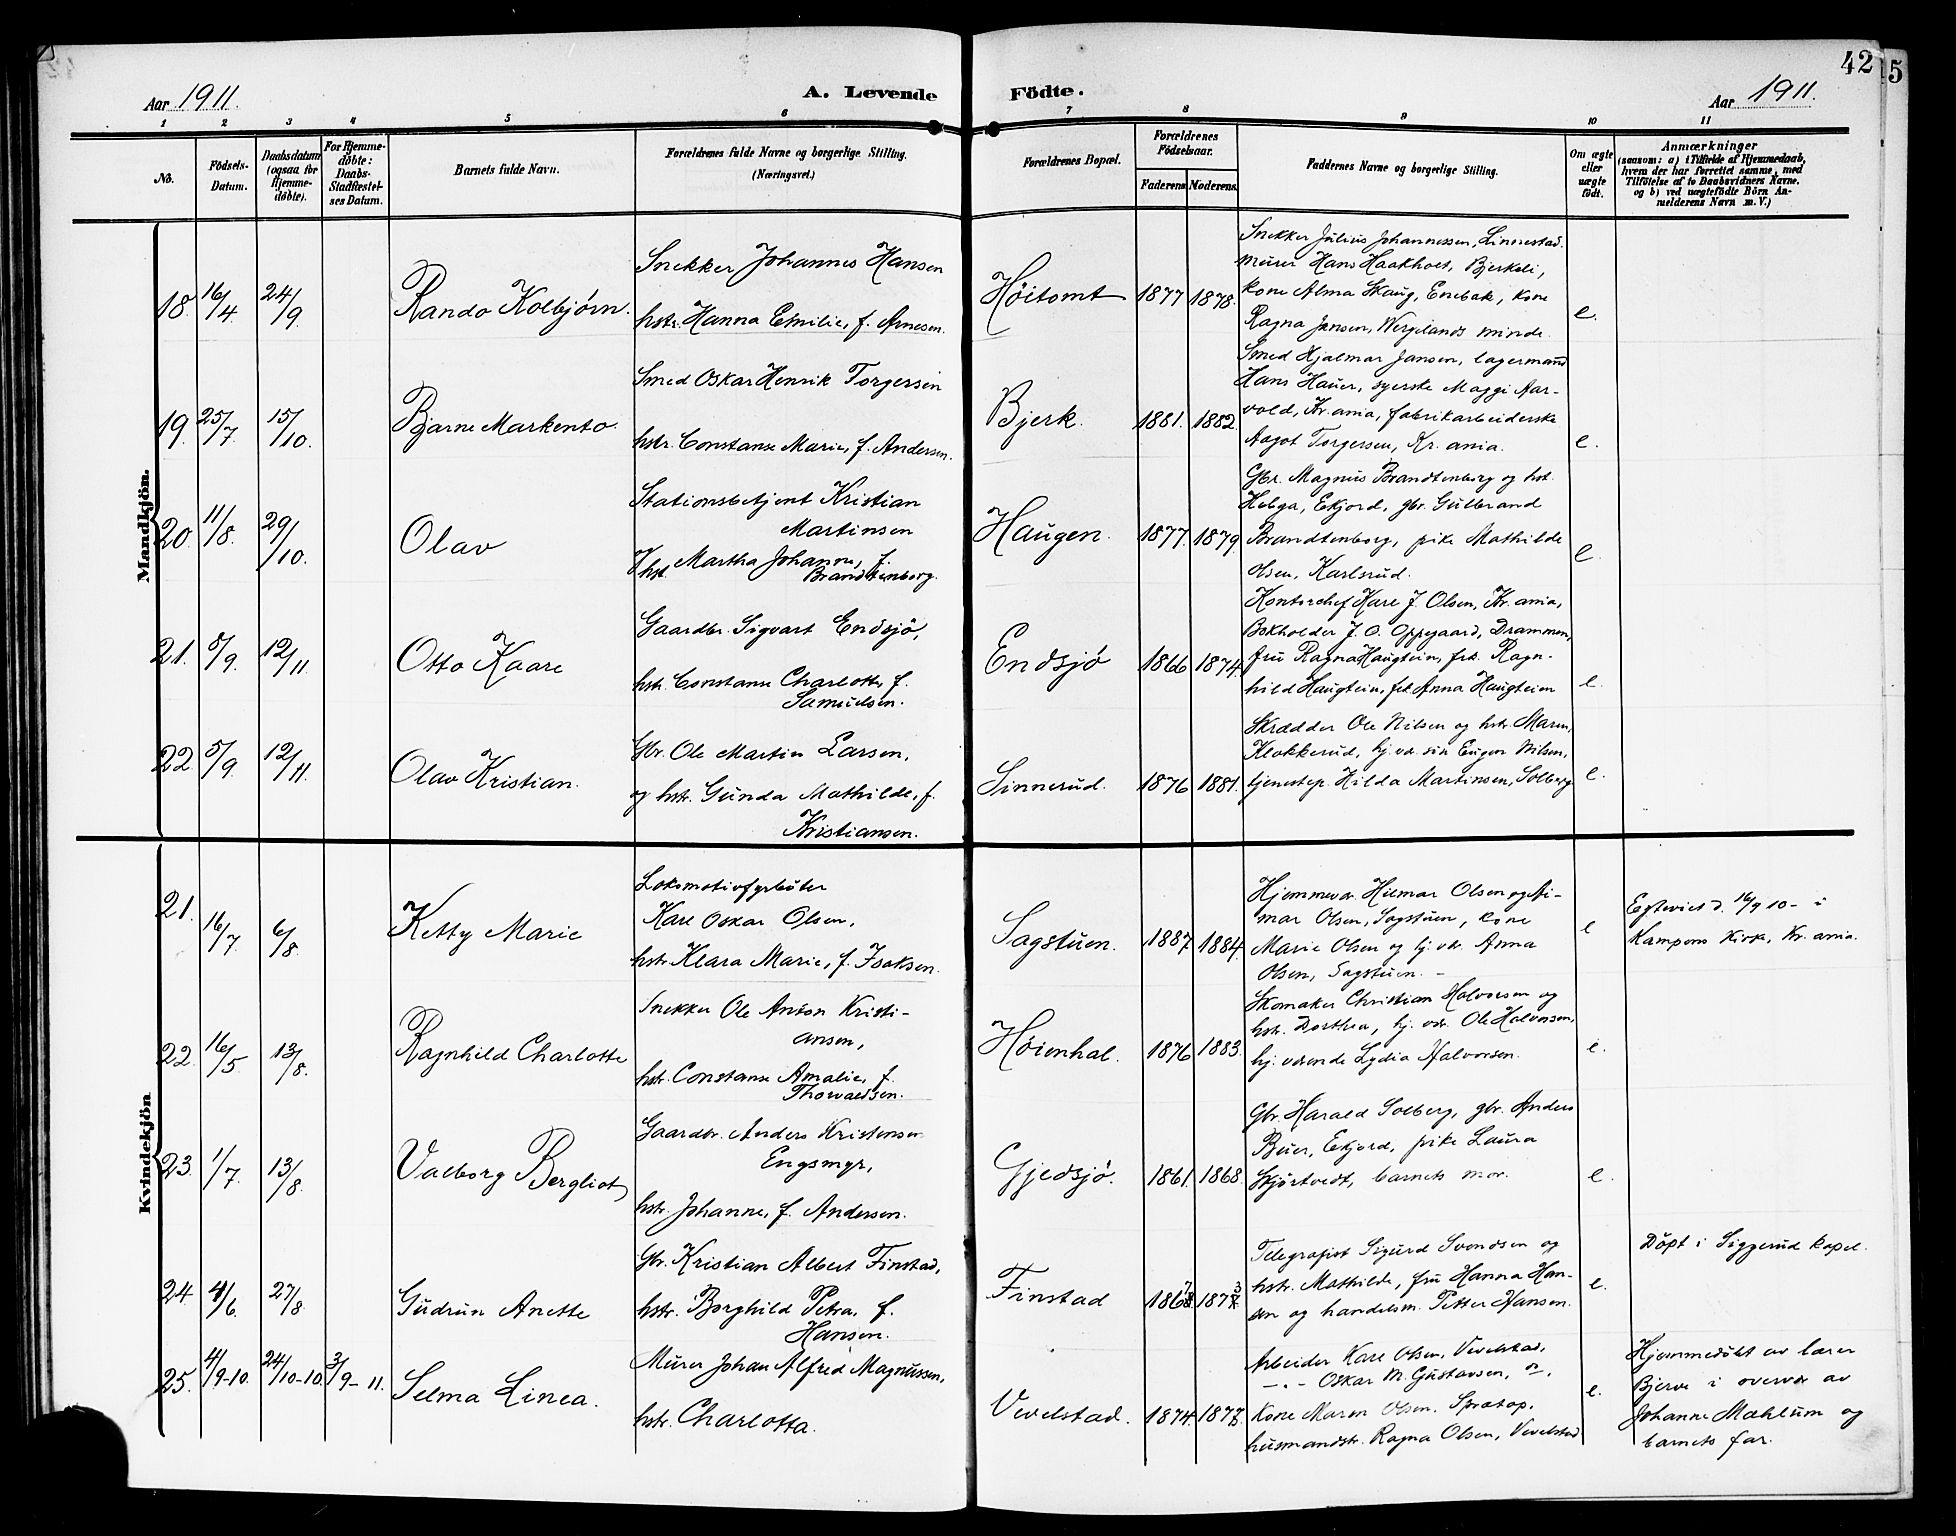 42
5
Aar 1911.
A. Levende
Födte.
Aar 1911.
1 2 3 4 5 6 7 8 9 10 11
No.
Födsels-
Datum.
Daabsdatum
(ogsaa for
Hjemme-
döbte).
For Hjemme-
döbte:
Daabs-
Stadfæstel-
ses Datum.
Barnets fulde Navn.
Forældrenes fulde Navne og borgerlige Stilling.
(Næringsvei.)
Forældrenes Bopæl.
Forældrenes
Födselsaar.
Faderens
Moderens
Faddernes Navne og borgerlige Stilling.
Om ægte
eller
uægte
födt.
Anmærkninger
(saasom: a) i Tilfælde af Hjemmedaab,
hvem der har forrettet samme, med
Tilföielse af to Daabsvidners Navne,
og b) ved uægtefödte Börn An-
melderens Navn m. V.)
Mandkjön.
18. 16/4 24/9
Rando Kolbjørn.
Snekker Johannes Hansen
hstr. Hanna Emilie, f. Arnesen.
Høitomt
1877 1878.
Snekker Julius Johannessen, Linnestad.
murer Hans Haakholt, Bjerkeli,
kone Alma Skaug, Enebak, kone
Ragna Jansen, Wergelands minde.
e.
19. 25/7 15/10.
Bjarne Markento.
Smed Oskar Henrik Torgersen
hstr. Constanse Marie, f. Andersen.
Bjerk.
1881. 1882.
Smed Hjalmar Jansen, lagermand
Hans Hauer, syerske Maggi Aar-
vold, Kr.ania, fabrikarbeiderske
Aagot Torgersen, Kr. ania.
e.
20. 11/8. 29/10.
Olav
Stationsbetjent Kristian
Martinsen
hst. Martha Johanne, f.
Brandtenborg.
Haugen.
1877. 1879
Gbr. Magnus Brandtenborg og hst.
Helga, Ekjord, gbr. Gulbrand
Brandtenborg, pike Mathilde
Olsen, Karlsrud.
e
21. 5/9. 12/11.
Otto Kaare
Gaardbr. Sigvart Endsjø,
hstr. Constanse Charlotte, f.
Samuelsen.
Endsjø
1866 1874.
Kontorchef Karl J. Olsen, Kr. ania,
Bokholder J. O. Oppegaard, Drammen,
fru Ragna Haugtein, frk. Ragn-
hild Haugtein, frk Anna Haugtein
e.
22. 5/9. 12/11.
Olav Kristian.
Gbr. Ole Martin Larsen,
og hstr. Gunda Mathilde, f.
Kristiansen.
Sinnerud.
1876 1881.
Skrædder Ole Nilsen og hstr. Maren,
Klokkerud, hj. vær. søn Eugen Nilsen,
tjenestep. Hilda Martinsen, Solberg
e.
Kvindekjön
21. 16/7 6/8.
Ketty Marie
Lokomotivfyrbøter
Karl Oskar Olsen,
hstr. Klara Marie, f. Isaksen.
Sagstuen.
1887 1884.
Hjemmevær. Hilmar Olsen og Ai-
mar Olsen, Sagstuen, kone
Marie Olsen og hj. vær. Anna
Olsen, Sagstuen. -
e
Egteviet d. 16/9 10 - i
Kampens Kirk, Kr. ania.
22. 16/5 13/8.
Ragnhild Charlotte
Snekker Ole Anton Kristi-
ansen,
hstr. Constanse Amalie, f.
Thorvaldsen.
Høienhal.
1876 1883.
Skomaker Christian Halvorsen og
hstr. Dorthea, hj. vær. Ole Halvorsen,
hj. værende Lydia Halvorsen.
e.
23. 1/7 13/8.
Valborg Bergliot
Gaardbr. Anders Kristensen
Engsmyr,
hstr. Johanne, f. Andersen.
Gjedsjø.
1861. 1868.
Gbr. Harald Solberg, gbr. Anders
Buer, Ekjord, pike Laura
Skjørtvedt, barnets mor.
e.
24. 4/6 27/8.
Gudrun Anette
Gbr. Kristian Albert Finstad,
hstr. Borghild Petra, f.
Hansen.
Finstad
1867 1873
Telegrafist Sigurd Svendsen og
hstr. Mathilde, fru Hanna Han-
sen og handelsm. Petter Hansen.
e.
Døpt i Siggerud kapel.
25. 4/9-10. 24/10-10. 3/9-11.
Selma Linea.
Murer Johan Alfred Magnussen,
hstr. Charlotta.
Vevelstad.
1874. 1877.
Arbeider Karl Olsen, Vevelstad,
- " - Oskar M. Gustavsen, "
Kone Maren Olsen, Sprætop,
husmandstr. Ragna Olsen, Vevelstad
e.
Hjemmedøbt av lærer
Bjerve i overvær av
Johanne Mæhlum og
barnets far.